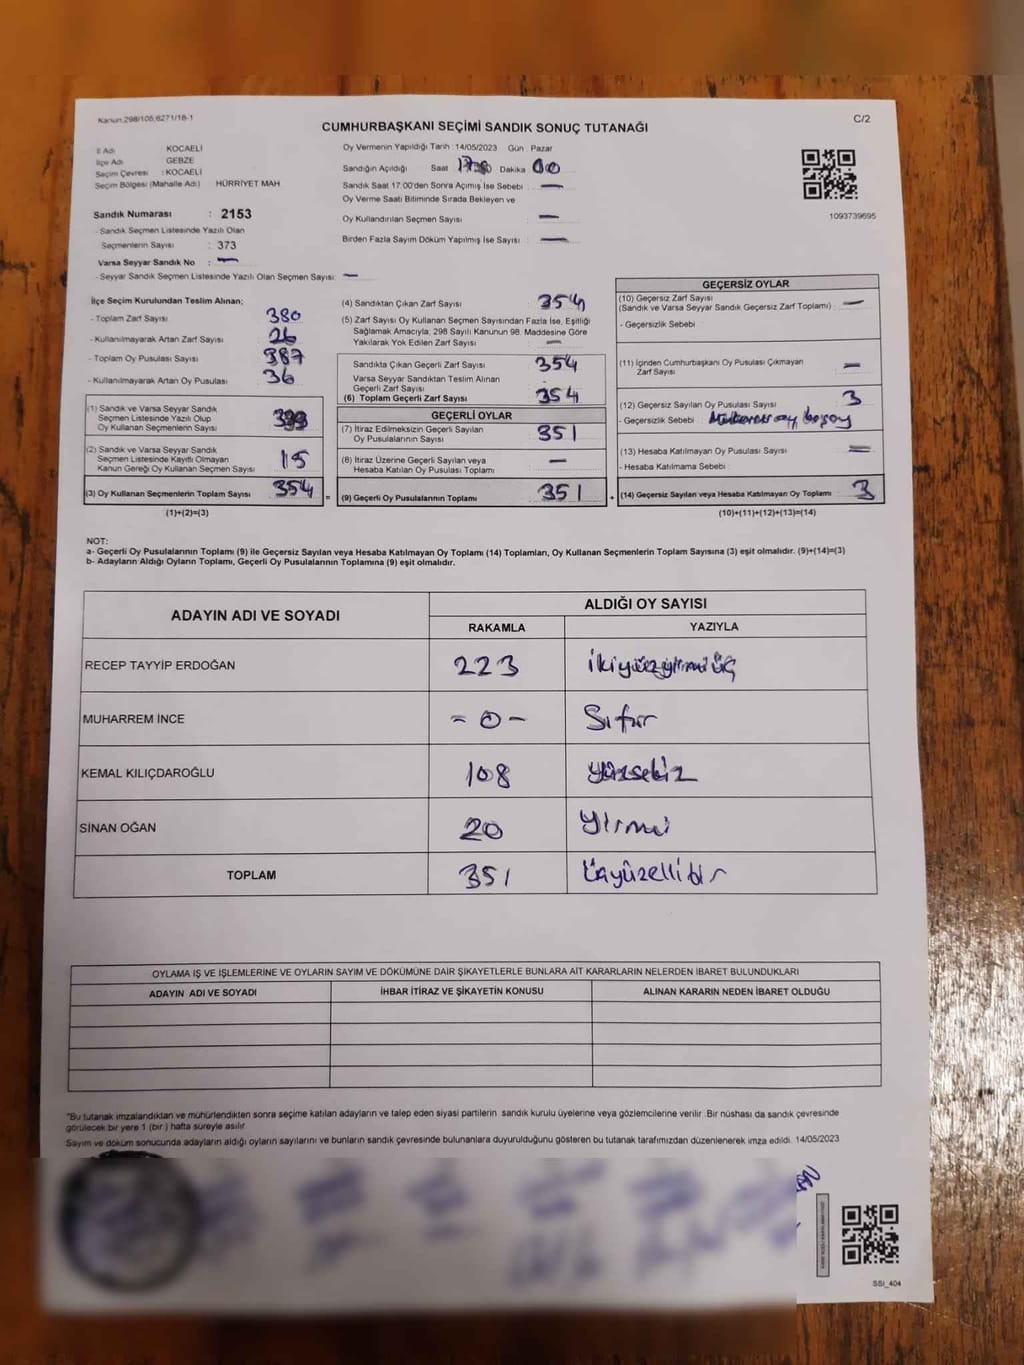 Kanun:298/105;6271/18-1
C/2
CUMHURBAŞKANI SEÇİMİ SANDIK SONUÇ TUTANAĞI
İl Adı KOCAELİ
İlçe Adı GEBZE
Seçim Çevresi : KOCAELİ
Seçim Bölgesi (Mahalle Adı) HÜRRİYET MAH
Sandık Numarası : 2153
- Sandık Seçmen Listesinde Yazılı Olan
Seçmenlerin Sayısı : 373
Varsa Seyyar Sandık No : —
- Seyyar Sandık Seçmen Listesinde Yazılı Olan Seçmen Sayısı: —
Oy Vermenin Yapıldığı Tarih : 14/05/2023 Gün : Pazar
Sandığın Açıldığı Saat Dakika 00
Sandık Saat 17:00'den Sonra Açımış İse Sebebi : —
Oy Verme Saati Bitiminde Sırada Bekleyen ve
Oy Kullandırılan Seçmen Sayısı : —
Birden Fazla Sayım Döküm Yapılmış İse Sayısı : —
1093739695
İlçe Seçim Kurulundan Teslim Alınan;
- Toplam Zarf Sayısı : 380
- Kullanılmayarak Artan Zarf Sayısı : 26
- Toplam Oy Pusulası Sayısı : 387
- Kullanılmayarak Artan Oy Pusulası : 36
(1) Sandık ve Varsa Seyyar Sandık
Seçmen Listesinde Yazılı Olup
Oy Kullanan Seçmenlerin Sayısı
(2) Sandık ve Varsa Seyyar Sandık
Seçmen Listesinde Kayıtlı Olmayan
Kanun Gereği Oy Kullanan Seçmen Sayısı 15
(3) Oy Kullanan Seçmenlerin Toplam Sayısı 354
(1)+(2)=(3)
=
(4) Sandıktan Çıkan Zarf Sayısı : 354
(5) Zarf Sayısı Oy Kullanan Seçmen Sayısından Fazla İse, Eşitliği
Sağlamak Amacıyla; 298 Sayılı Kanunun 98. Maddesine Göre
Yakılarak Yok Edilen Zarf Sayısı : —
Sandıkta Çıkan Geçerli Zarf Sayısı : 354
Varsa Seyyar Sandıktan Teslim Alınan
Geçerli Zarf Sayısı : —
(6) Toplam Geçerli Zarf Sayısı : 354
GEÇERLİ OYLAR
(7) İtiraz Edilmeksizin Geçerli Sayılan
Oy Pusulalarının Sayısı : 351
(8) İtiraz Üzerine Geçerli Sayılan veya
Hesaba Katılan Oy Pusulası Toplamı : —
(9) Geçerli Oy Pusulalarının Toplamı : 351
+
GEÇERSİZ OYLAR
(10) Geçersiz Zarf Sayısı
(Sandık ve Varsa Seyyar Sandık Geçersiz Zarf Toplamı) : —
- Geçersizlik Sebebi :
(11) İçinden Cumhurbaşkanı Oy Pusulası Çıkmayan
Zarf Sayısı : —
(12) Geçersiz Sayılan Oy Pusulası Sayısı : 3
- Geçersizlik Sebebi : oy,
(13) Hesaba Katılmayan Oy Pusulası Sayısı : —
- Hesaba Katılmama Sebebi :
(14) Geçersiz Sayılan veya Hesaba Katılmayan Oy Toplamı : 3
(10)+(11)+(12)+(13)=(14)
NOT:
a- Geçerli Oy Pusulalarının Toplamı (9) ile Geçersiz Sayılan veya Hesaba Katılmayan Oy Toplamı (14) Toplamları, Oy Kullanan Seçmenlerin Toplam Sayısına (3) eşit olmalıdır. (9)+(14)=(3)
b- Adayların Aldığı Oyların Toplamı, Geçerli Oy Pusulalarının Toplamına (9) eşit olmalıdır.
ADAYIN ADI VE SOYADI ALDIĞI OY SAYISI
RAKAMLA YAZIYLA
RECEP TAYYİP ERDOĞAN 223 ikiyüzyirmiüç
MUHARREM İNCE - 0 - Sıfır
KEMAL KILIÇDAROĞLU 108 yüzsekiz
SİNAN OĞAN 20 yirmi
TOPLAM 351 Üçyüzellibir
OYLAMA İŞ VE İŞLEMLERİNE VE OYLARIN SAYIM VE DÖKÜMÜNE DAİR ŞİKAYETLERLE BUNLARA AİT KARARLARIN NELERDEN İBARET BULUNDUKLARI
ADAYIN ADI VE SOYADI İHBAR İTİRAZ VE ŞİKAYETİN KONUSU ALINAN KARARIN NEDEN İBARET OLDUĞU
"Bu tutanak imzalandıktan ve mühürlendikten sonra seçime katılan adayların ve talep eden siyasi partilerin sandık kurulu üyelerine veya gözlemcilerine verilir .Bir nüshası da sandık çevresinde
görülecek bir yere 1 (bir ) hafta süreyle asılır
Sayım ve döküm sonucunda adayların aldığı oyların sayılarını ve bunların sandık çevresinde bulunanlara duyurulduğunu gösteren bu tutanak tarafımızdan düzenlenerek imza edildi. 14/05/2023
SSI_404